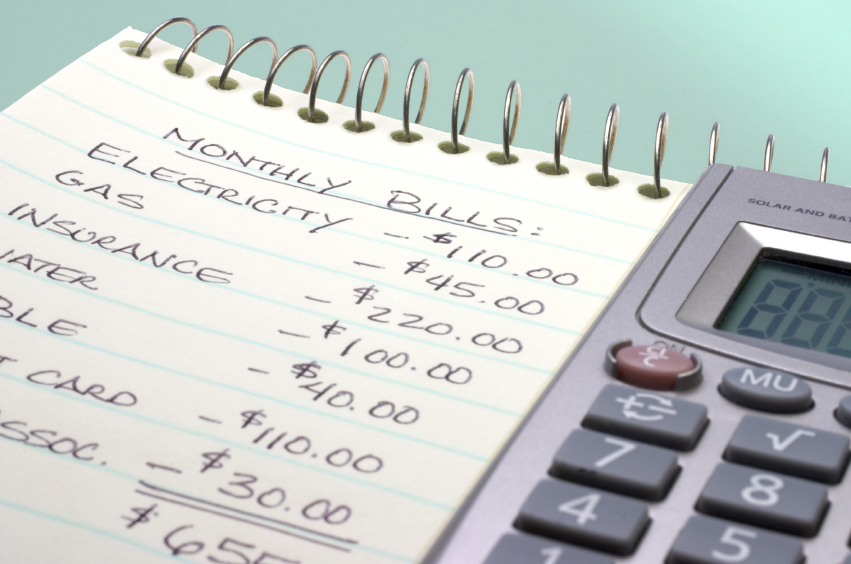 MONTHLY BILLS:
ELECTRICITY - $110.00
GAS - $45.00
INSURANCE - $220.00
WATER - $100.00
BLE - $40.00
T CARD - $110.00
ASSOC. - $30.00
$655
SOLAR AND BAT
ON/C
MU
√
7
8
4
5
1